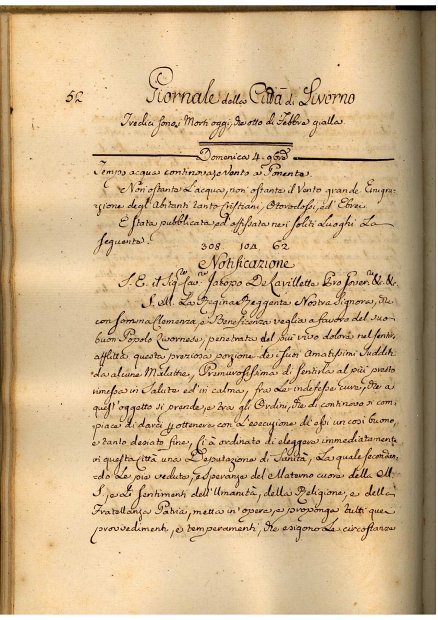 52
Giornale della Città di Livorno
Tredici sono i Morti oggi, che otto di Febbre gialla
Domenica 4. 9bre
Tempo acqua continovo Vento a Ponente
Non ostante L'acqua, non' ostante il Vento grande Emigra-
zione degl'Abitanti tanto Cristiani, Otorodossi, ed Ebrei.
È stata pubblicata, ed' affissata nei soliti Luoghi La
seguente.
308 104 62
Notificazione
S. E. il Sig. Jacopo De Lavilletta Pro Gover. &. &.
S. M. La Regina Reggente Nostra Signora, che
con somma Clemenza, e Beneficenza veglia a favore del suo
buon Popolo Livornese, penetrata del più vivo dolore nel sentir
afflitta questa preziosa porzione de i suoi Amatissimi Sudditi
da alcune Malattie, Premurosissima di sentirla al più presto
rimessa in Salute ed' in calma, fra Le indefesse cure, che a
quest'oggetto si prende, e tra gli Ordini, che di continovo si com-
piace di darci per ottenere con L'esecuzione di essi un così buono,
e tanto desiato fine, ci à ordinato di eleggere immediatamente
in questa città una Deputazione di Sanità, La quale secondan-
do Le pie vedute, e speranze del Materno cuore della M.
S., e di sentimenti dell'Umanità, della Religione, e della
Fratellanza Patria, metta in'opera, e proponga tutti que'
provvedimenti, e temperamenti, che esigono Le circostanze